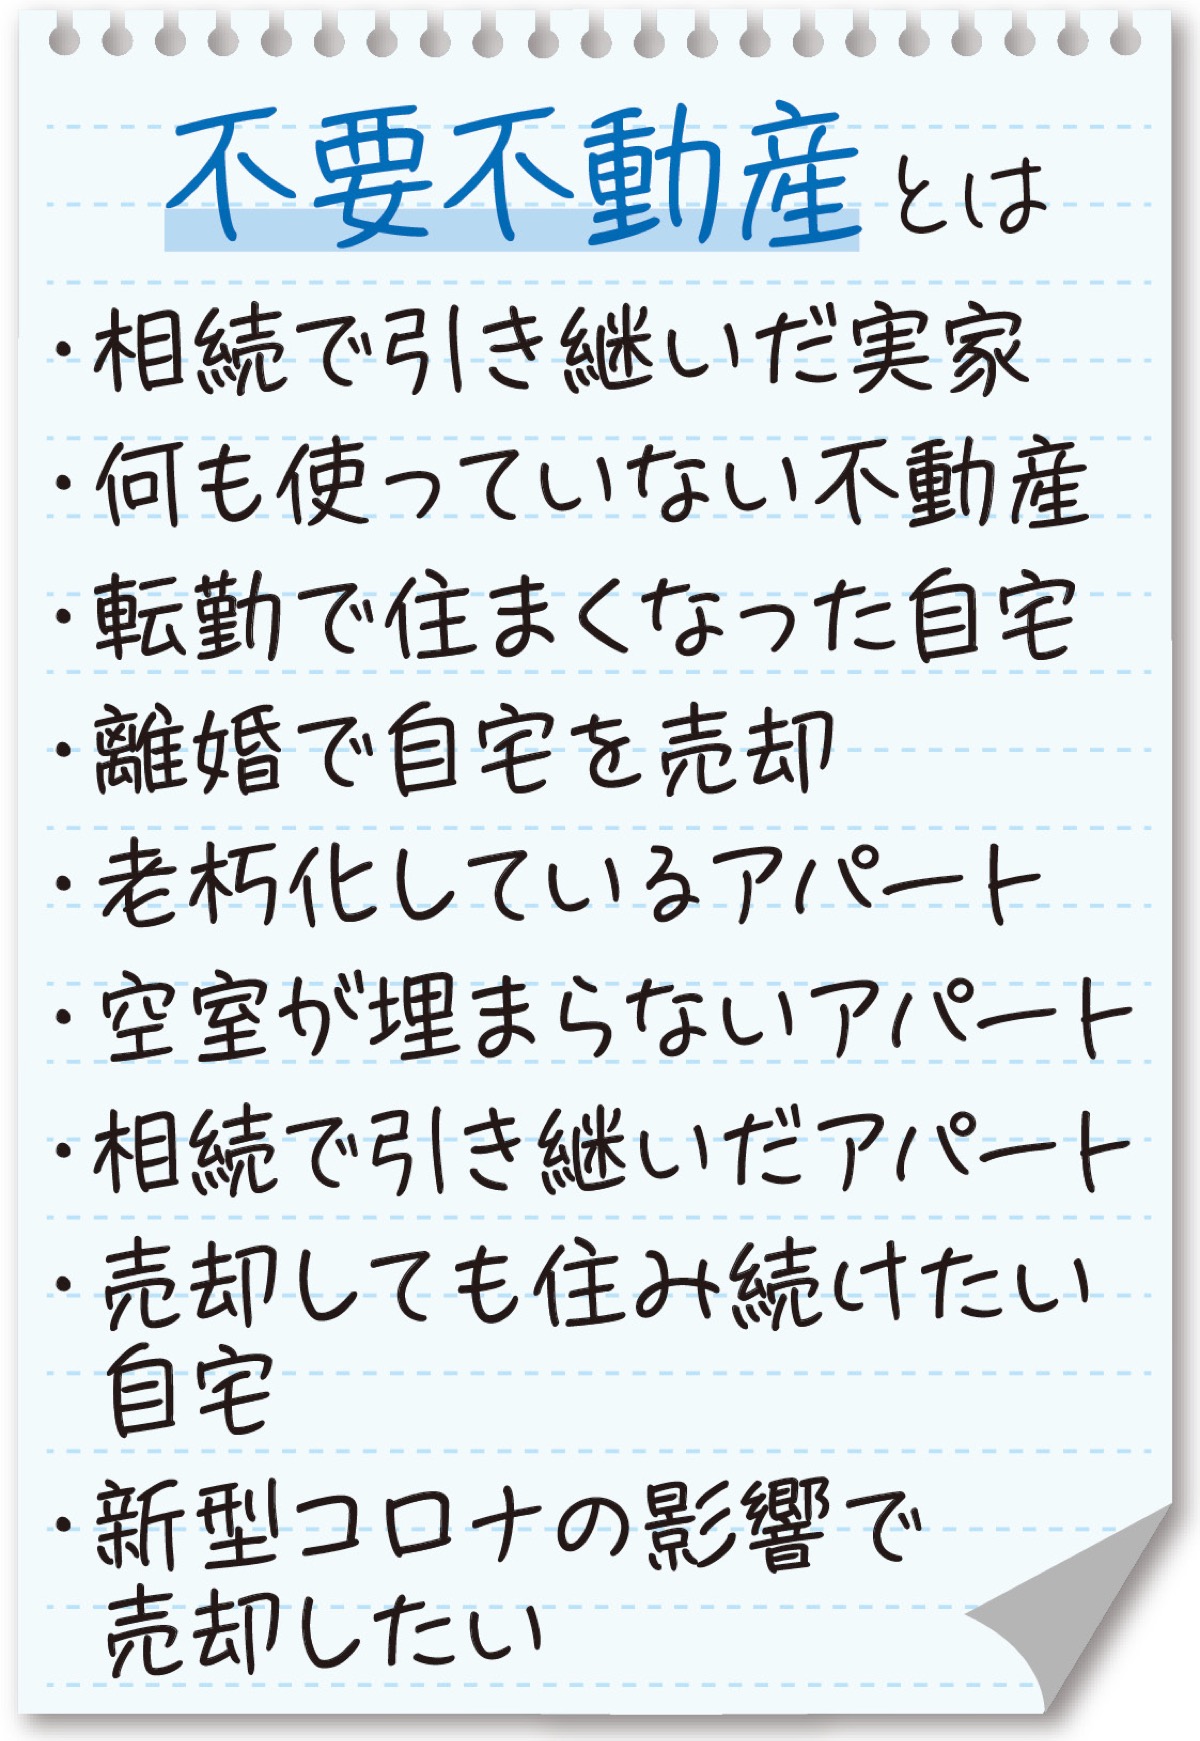 不要不動産とは
・相続で引き継いだ実家
・何も使っていない不動産
・転勤で住まくなった自宅
・離婚で自宅を売却
・老朽化しているアパート
・空室が埋まらないアパート
・相続で引き継いだアパート
・売却しても住み続けたい
自宅
・新型コロナの影響で
売却したい